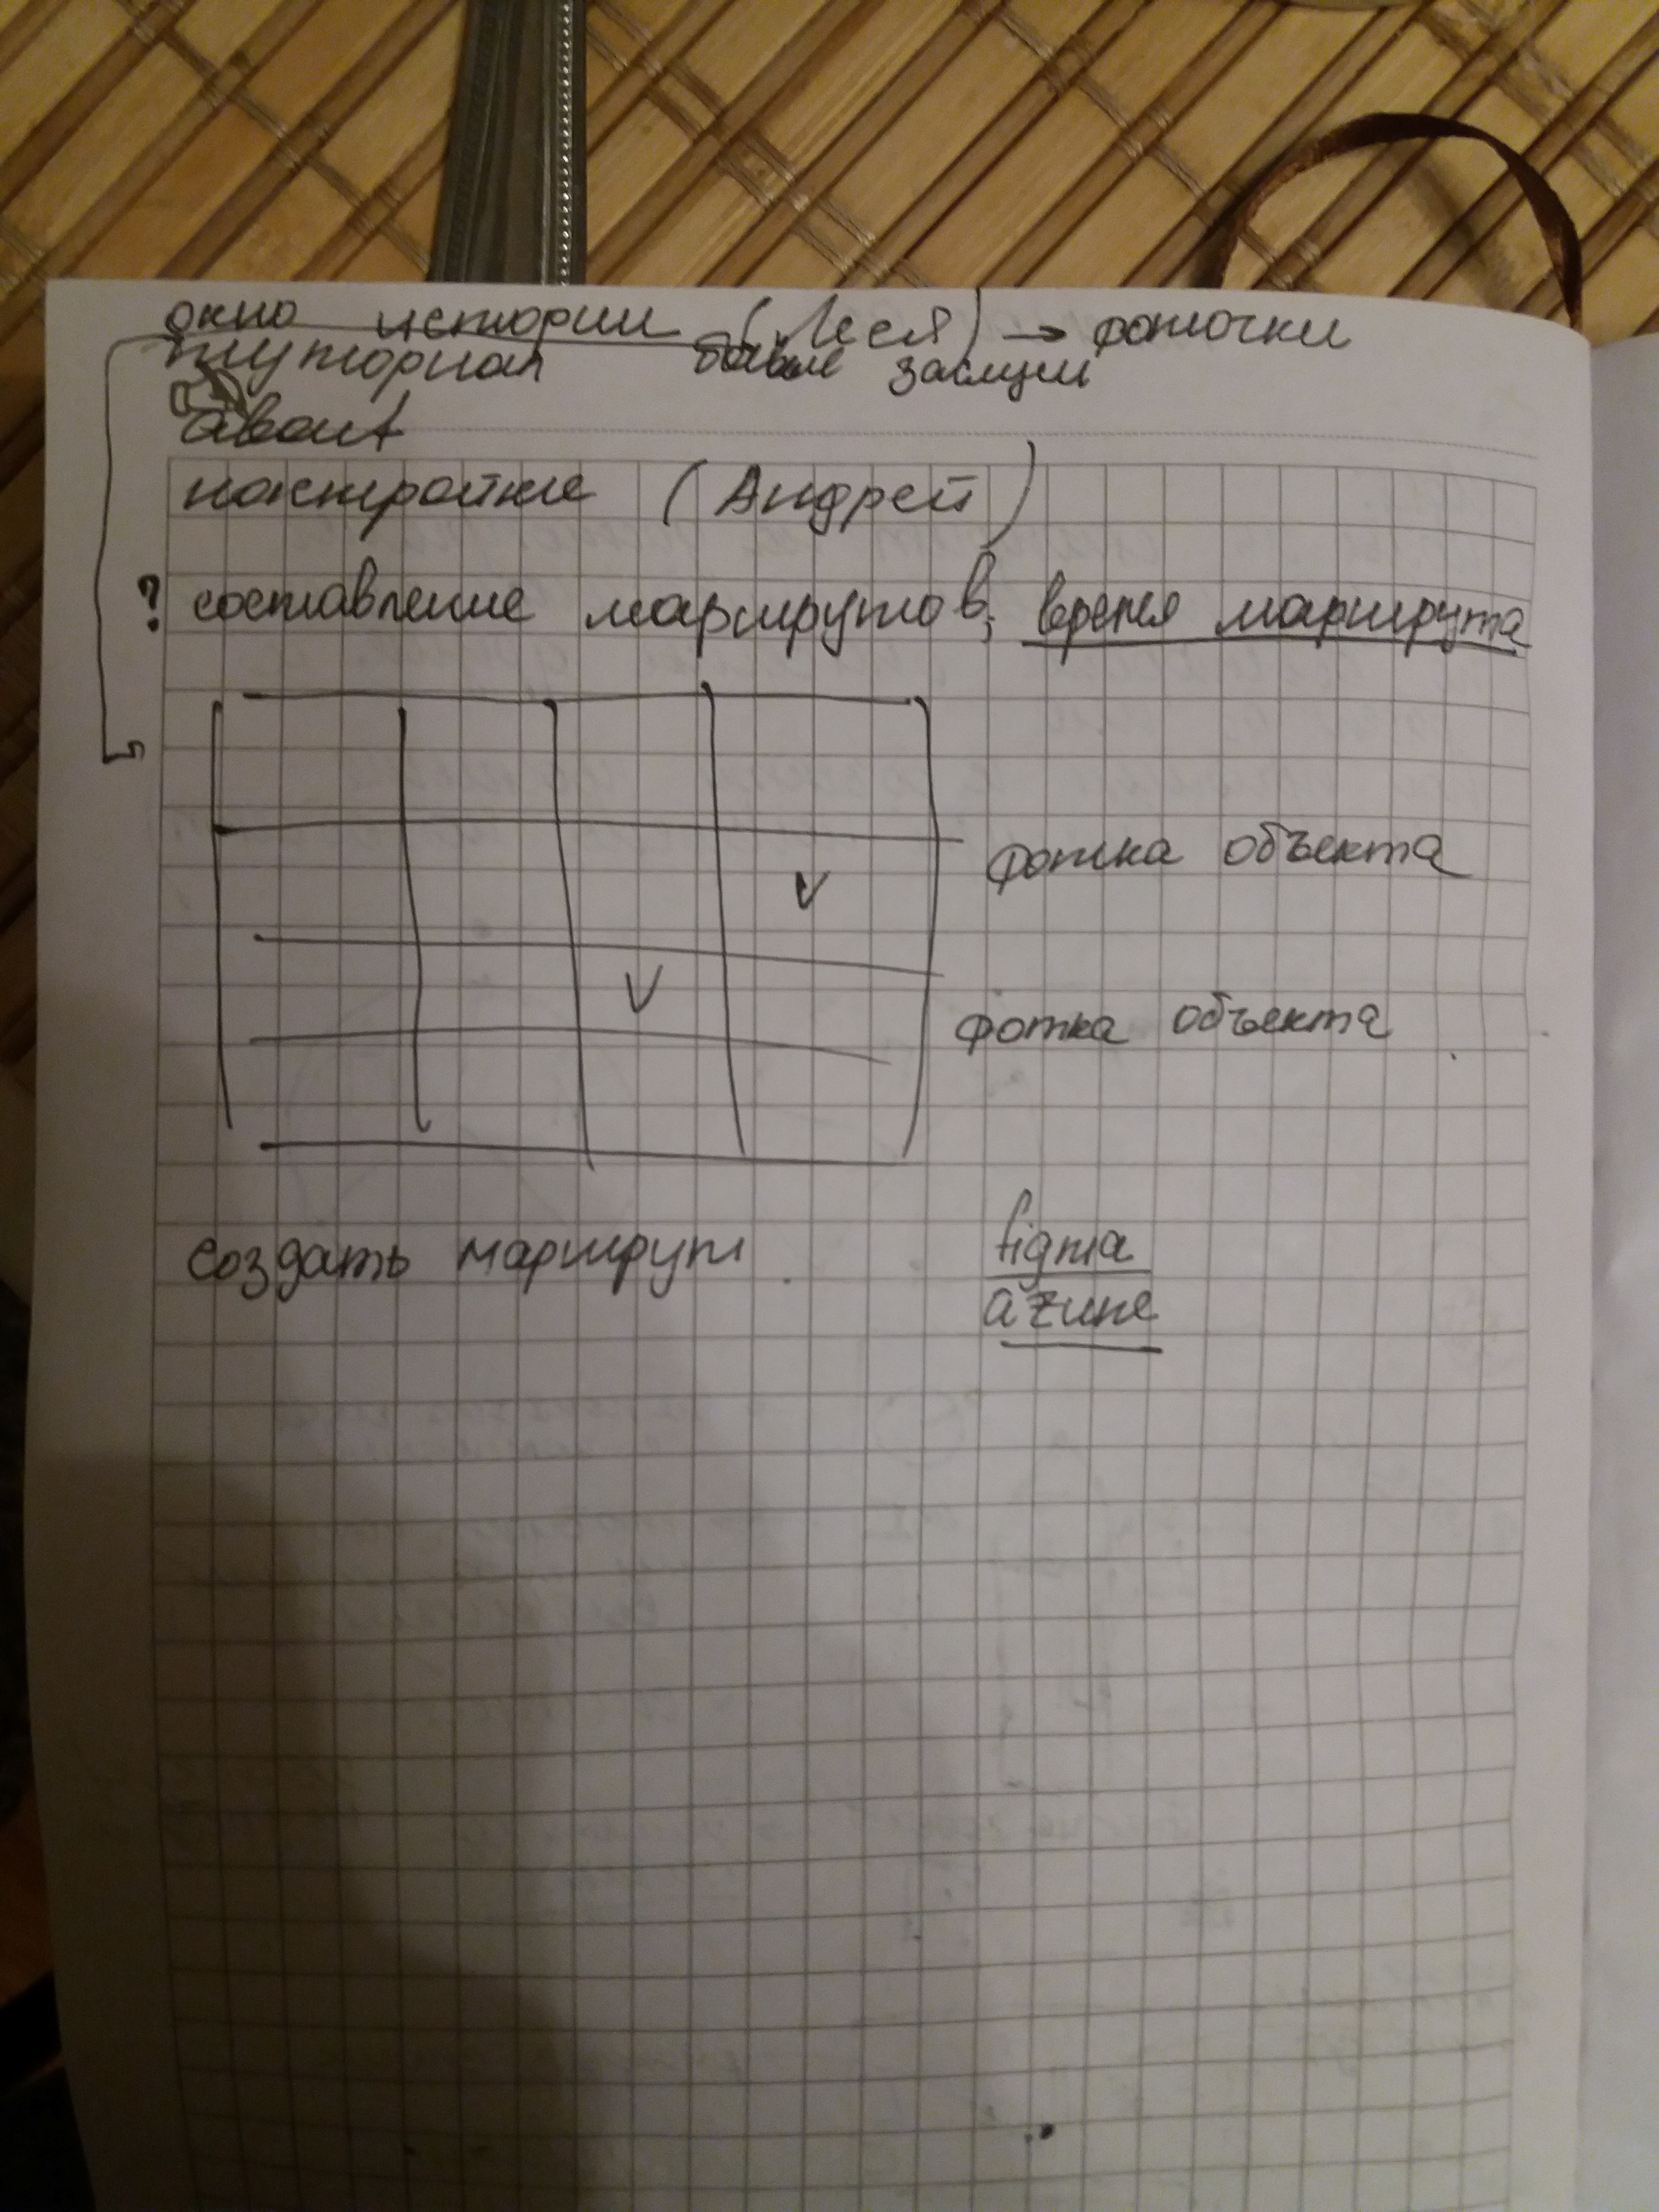 окно истории (Леся) → фоточки
туториал
about
настройки (Андрей)
? составление маршрутов, время маршрута
V
фотка объекта
V
фотка объекта
создать маршрут
figma
azure